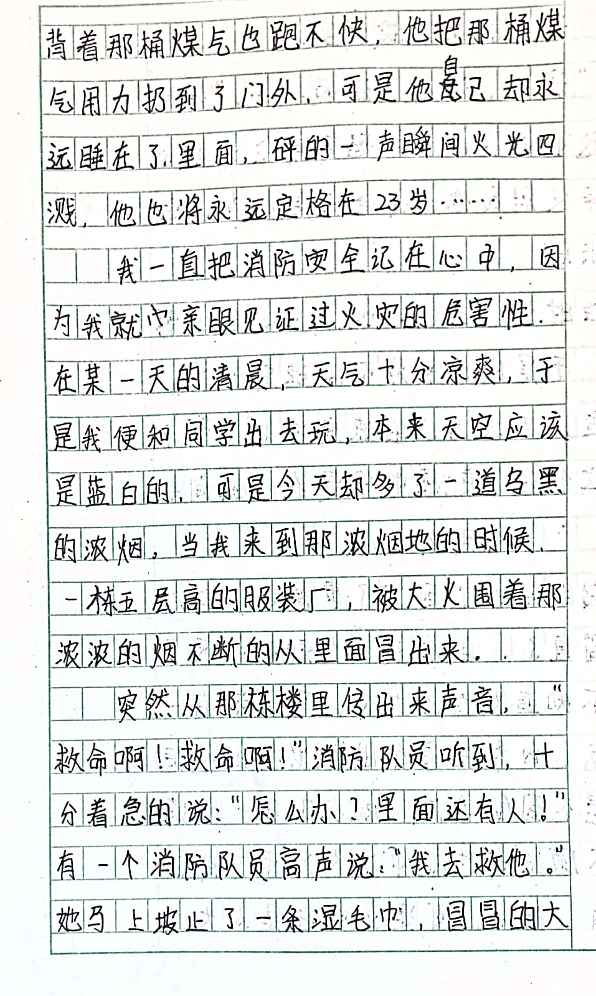 背着那桶煤气也跑不快，他把那桶煤
气用力扔到了门外，可是他自己却永
远睡在了里面，砰的一声瞬间火光四
溅，他也将永远定格在23岁……
我一直把消防安全记在心中，因
为我就亲眼见证过火灾的危害性．
在某一天的清晨，天气十分凉爽，于
是我便和同学出去玩，本来天空应该
是蓝白的，可是今天却多了一道乌黑
的浓烟，当我来到那浓烟地的时候，
一栋五层高的服装厂，被大火围着那
浓浓的烟不断的从里面冒出来．
突然从那栋楼里传出来声音，“
救命啊！救命啊！”消防队员听到，十
分着急的说：“怎么办？里面还有人！”
有一个消防队员高声说：“我去救他。”
她马上披上了一条湿毛巾，冒冒的大